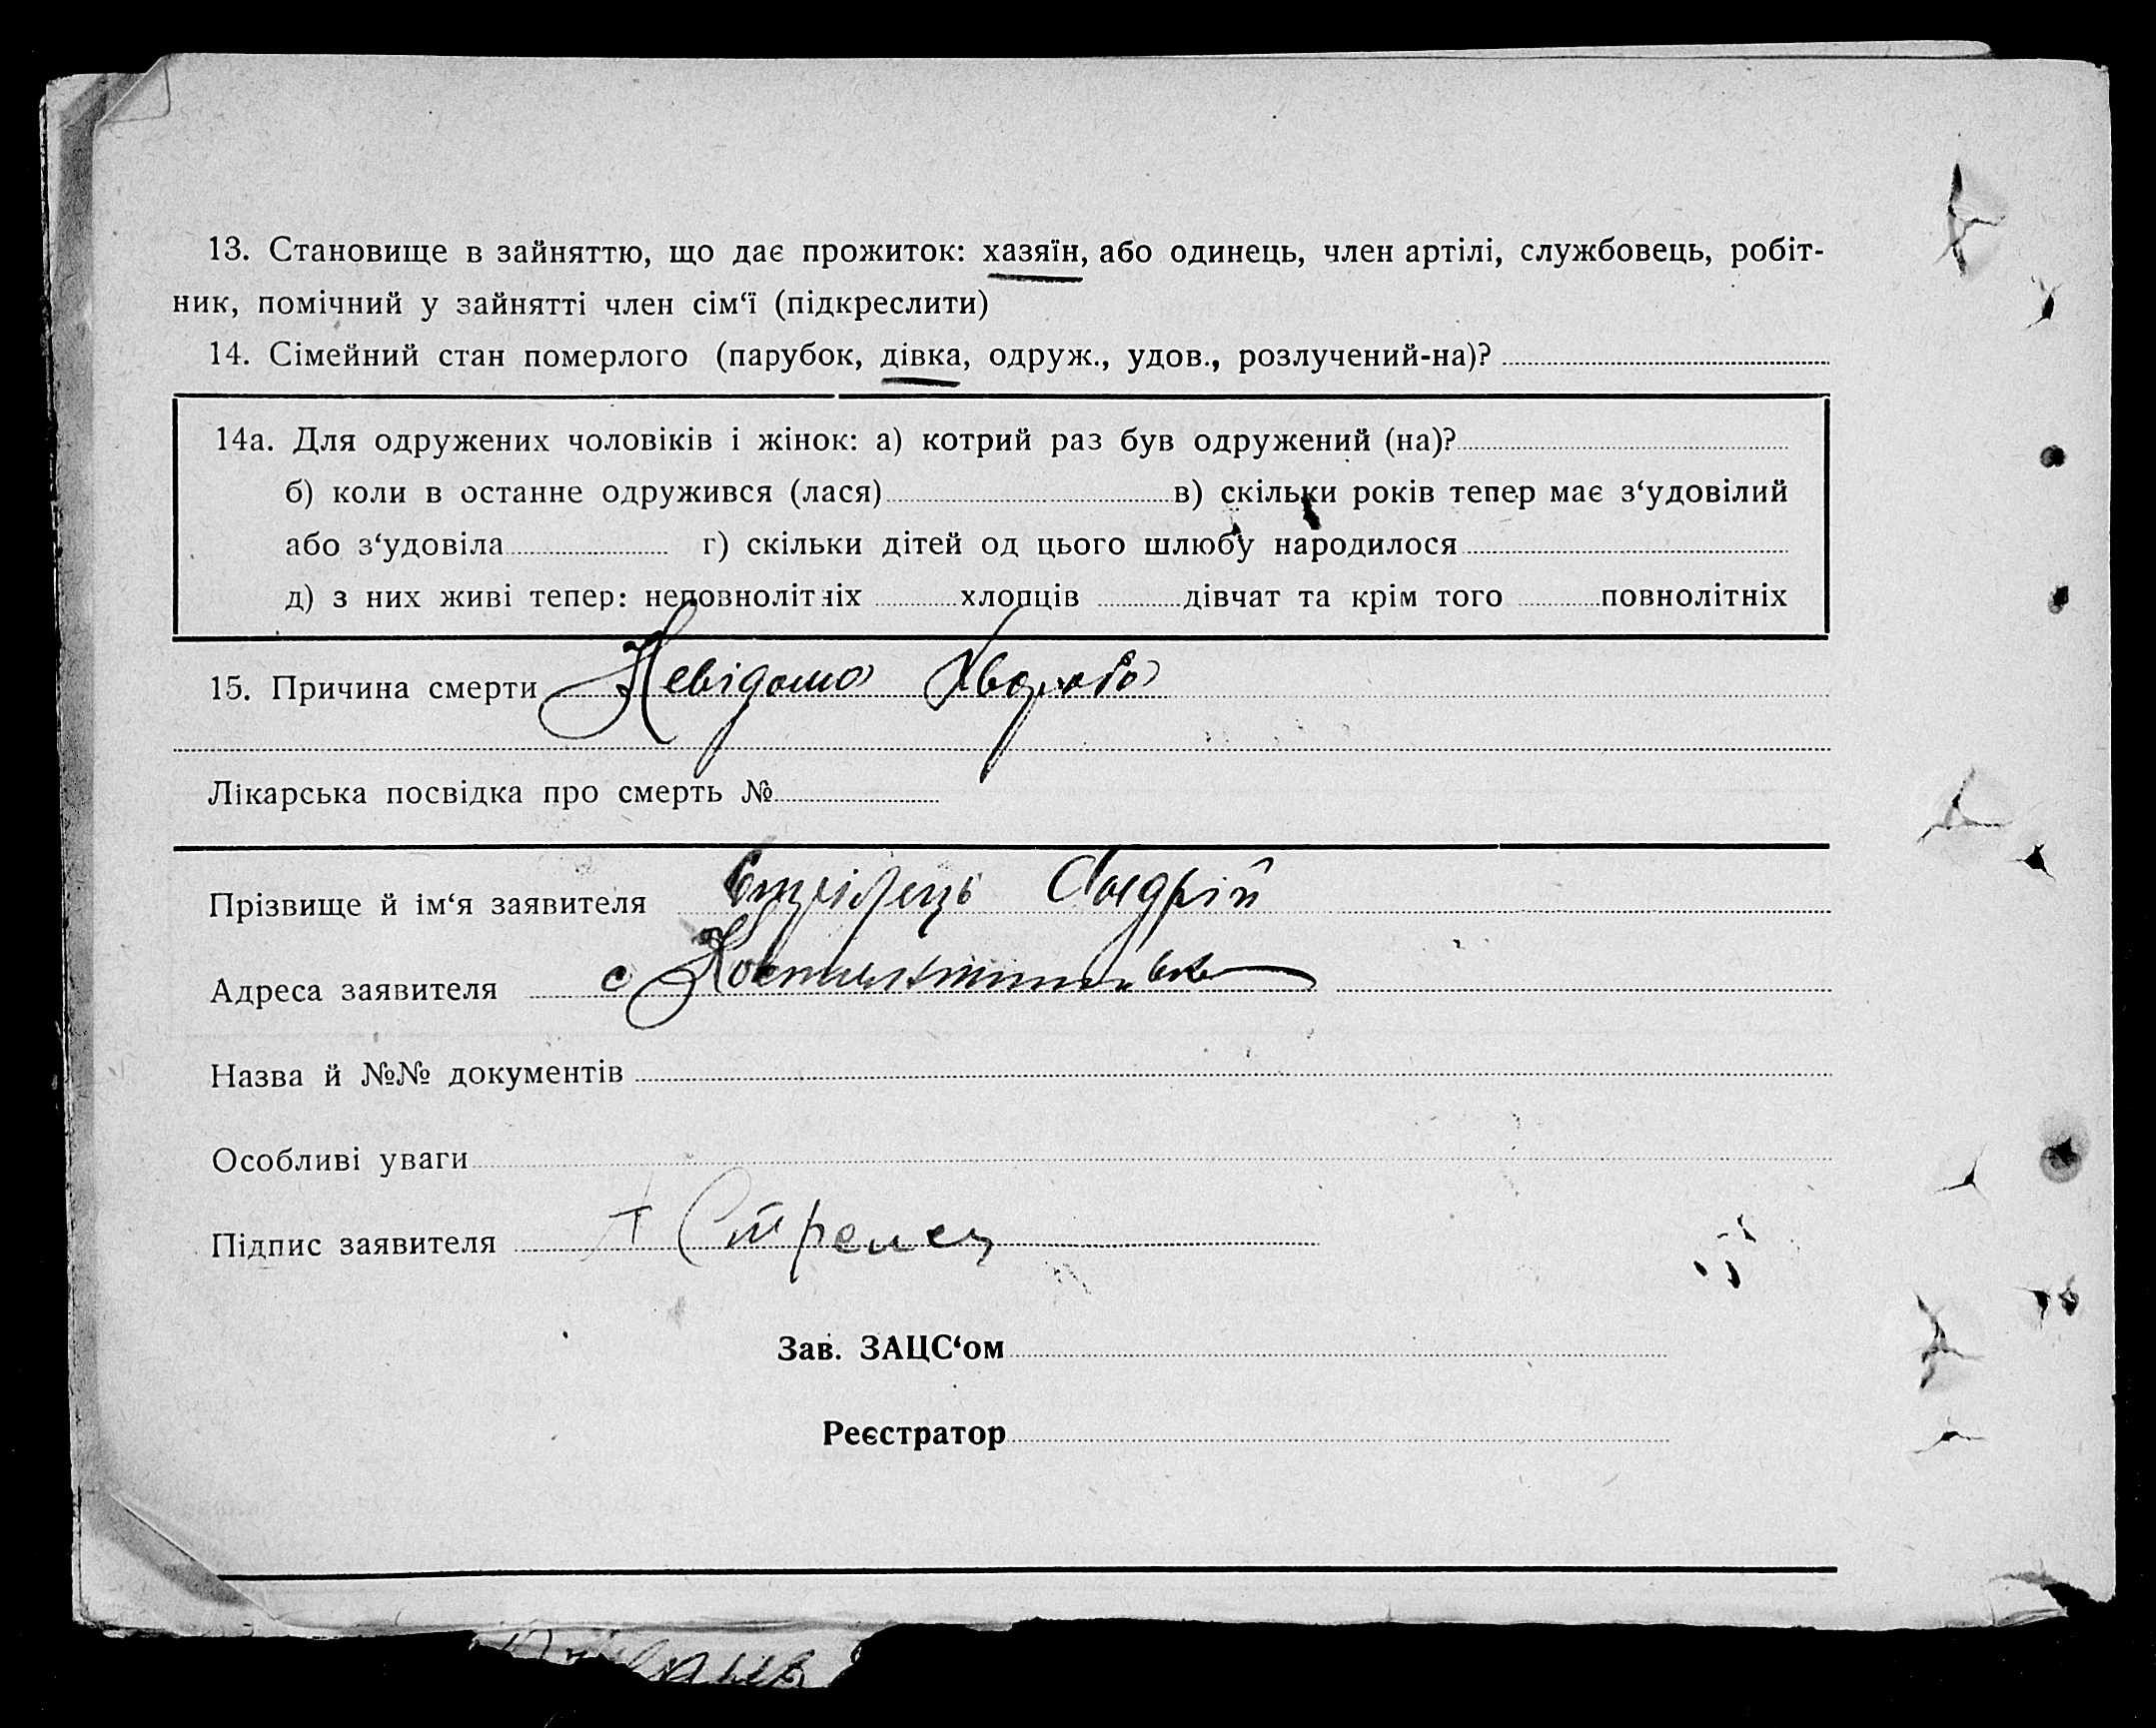 13. Становище в зайняттю, що дає прожиток: хазяїн, або одинець, член артілі, службовець, робіт-
ник, помічний у зайнятті член сім‘ї (підкреслити)
14. Сімейний стан померлого (парубок, дівка, одруж., удов., розлучений-на)?
14а. Для одружених чоловіків і жінок: а) котрий раз був одружений (на)?
б) коли в останне одружився (лася) в) скільки років тепер має з‘удовілий
або з‘удовіла г) скільки дітей од цього шлюбу народилося
д) з них живі тепер: неповнолітніх хлопців дівчат та крім того повнолітніх
15. Причина смерти Невідомо Хвороба
Лікарська посвідка про смерть №
Прізвище й ім‘я заявителя Стрілець Андрій
Адреса заявителя с Константиновка
Назва й №№ документів
Особливі уваги
Підпис заявителя А Стрелец
Зав. ЗАЦС‘ом
Реєстратор